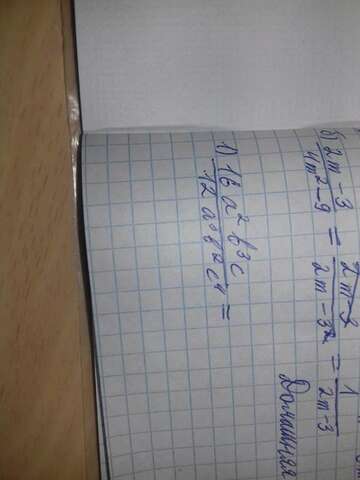 б) 2m-3 / 4m²-9 = 2m-3 / 2m-3² = 1 / 2m-3
Домашняя
1) 16 a² b³c / 12 a³b²c⁴ =